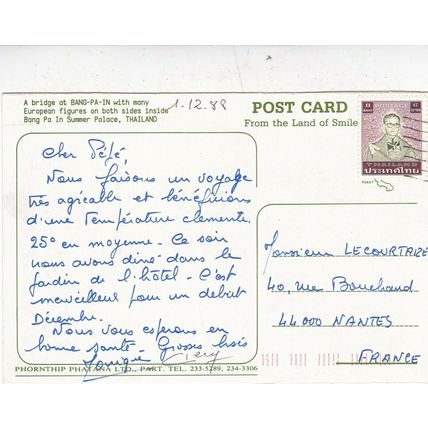 A bridge at BANG-PA-IN with many
European figures on both sides inside
Bang Pa In Summer Palace, THAILAND
1-12.88
POST CARD
From the Land of Smile
POSTAGE
THAILAND
ประเทศไทย
PHUKET
Cher Pépé,
Nous faisons un voyage
très agréable et bénéficions
d'une Température clemente.
25° en moyenne - Ce soir
nous avons diné dans le
jardin de l'hôtel - C'est
merveilleux pour un debut
Décembre.
Nous vous esperons en
bonne santé - Grosses bises
Monsieur LECOURTAIRE
40, rue Bouchaud
44000 NANTES
FRANCE
PHORNTHIP PHATANA LTD., PART. TEL. 233-5289, 234-3306